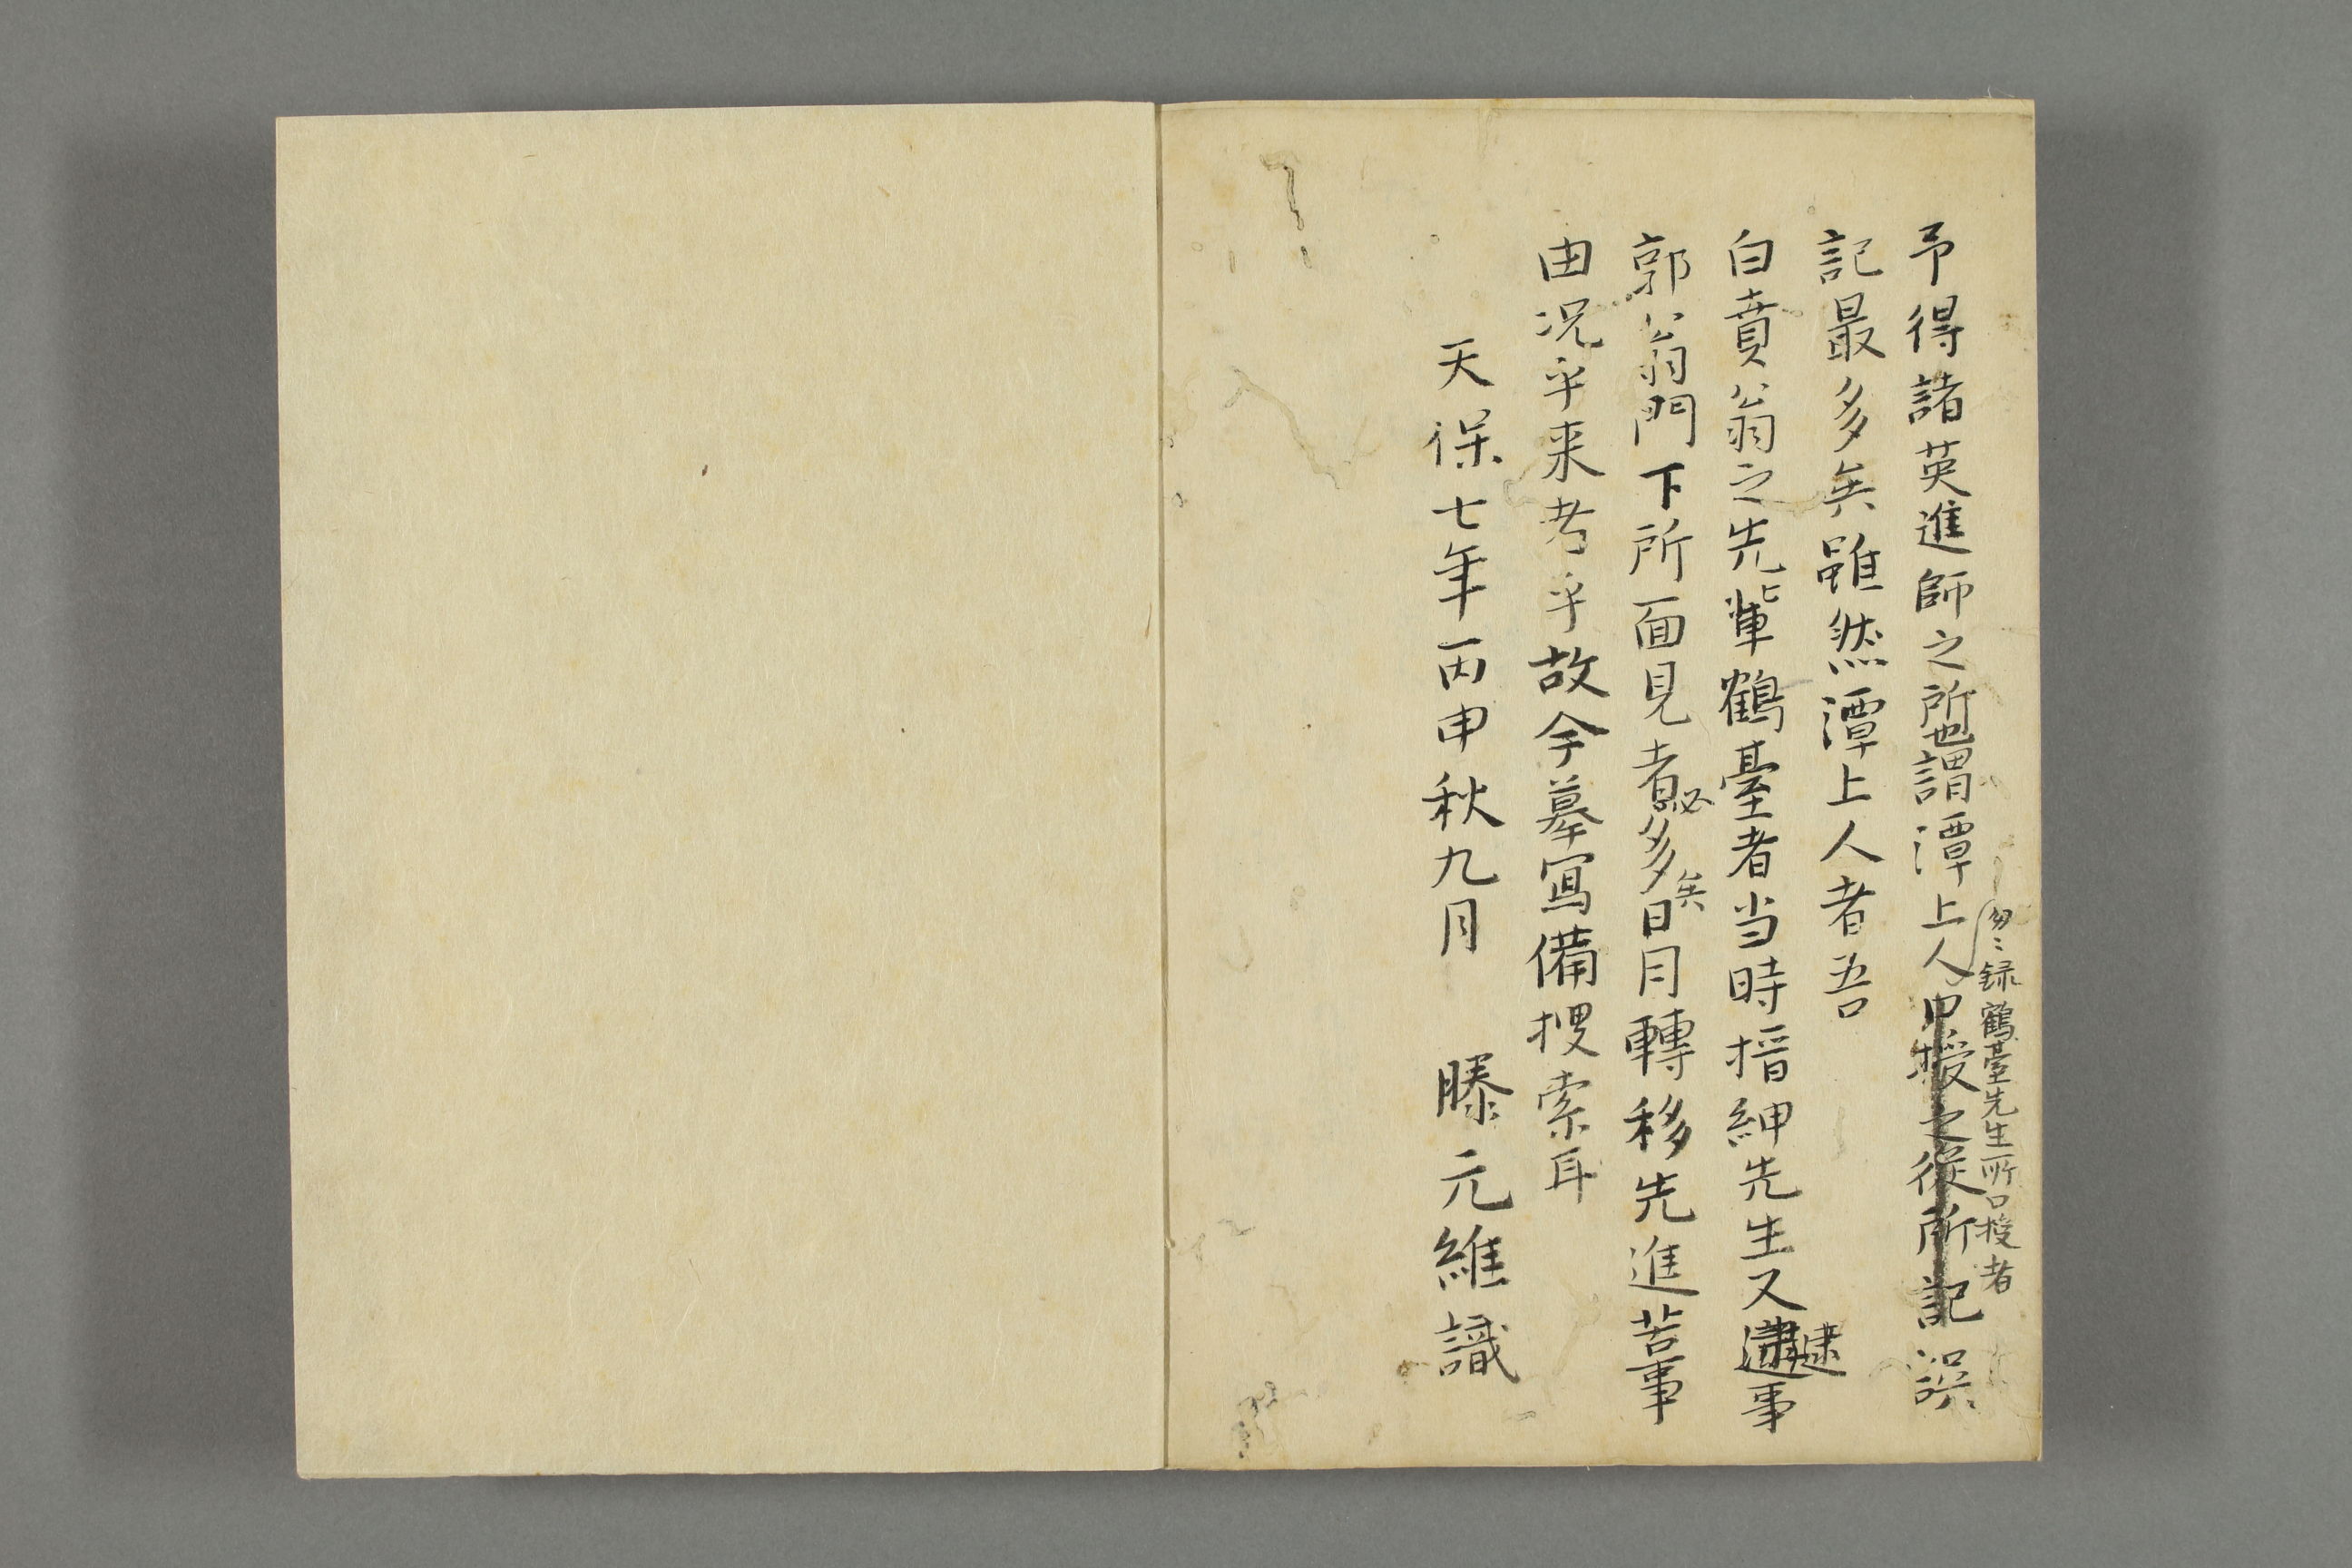 予得諸英進師之所也謂潭上人口授之後所記誤
匆々録鶴臺先生所口授者
記最多矣雖然潭上人者吾
白賁翁之先輩鶴臺者当時搢紳先生又逮事
郭翁門下所面見者必多矣日月轉移先進苦事
由况乎来考乎故今摹寫備捜索耳
天保七年丙申秋九月 滕元維識